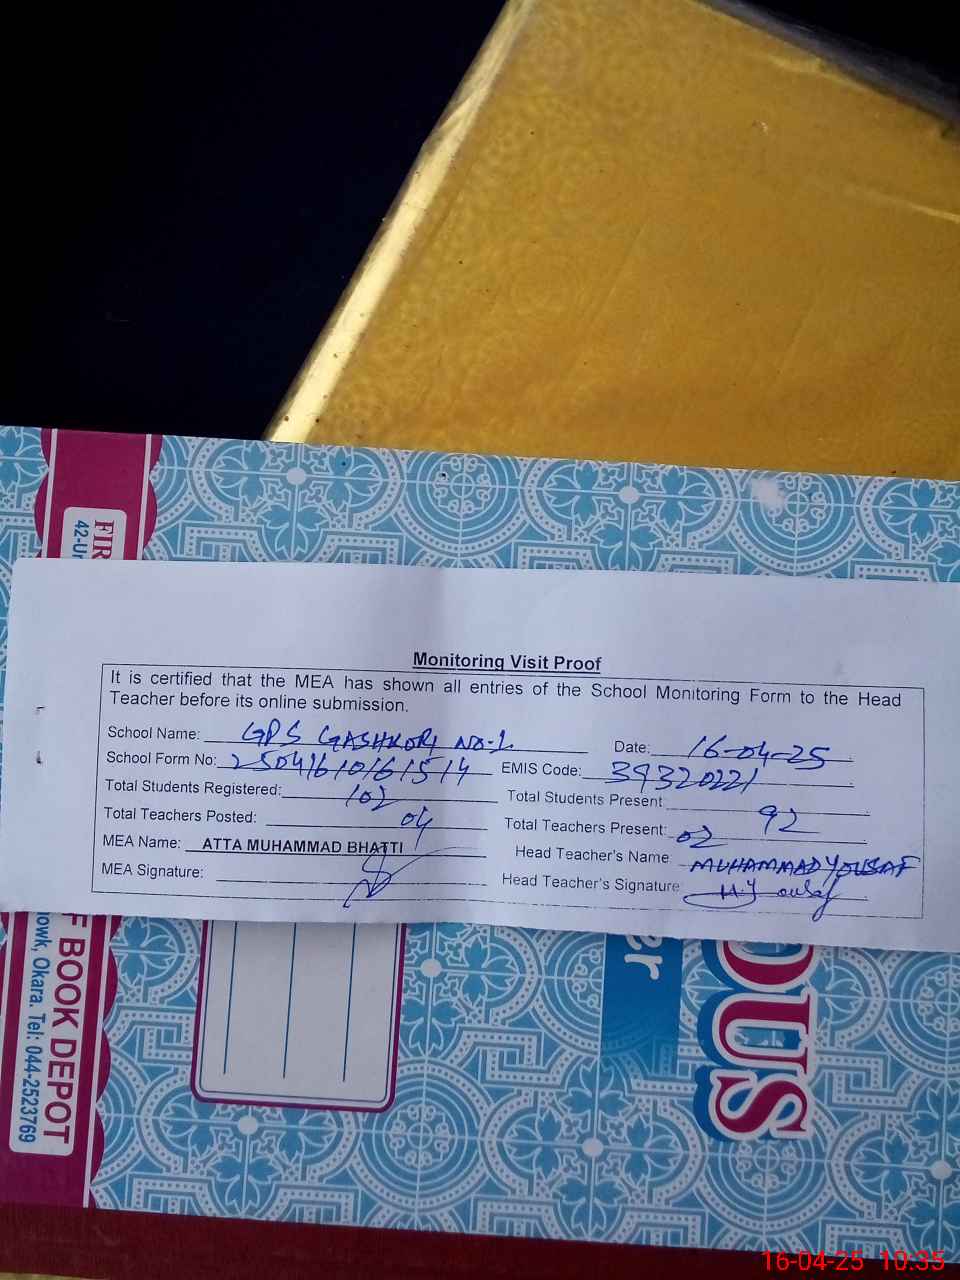 FIR
42-Ur
Monitoring Visit Proof
It is certified that the MEA has shown all entries of the School Monitoring Form to the Head
Teacher before its online submission.
School Name: GPS GASHKORI NO-1 Date: 16-04-25
School Form No: 25041610161514 EMIS Code: 39320221
Total Students Registered: 102 Total Students Present: 92
Total Teachers Posted: 04 Total Teachers Present: 02
MEA Name: ATTA MUHAMMAD BHATTI Head Teacher's Name MUHAMMAD YOUSAF
MEA Signature: Head Teacher's Signature: M.Yousaf
F BOOK DEPOT
owk, Okara. Tel: 044-2523769
er
OUS
16-04-25 10:35